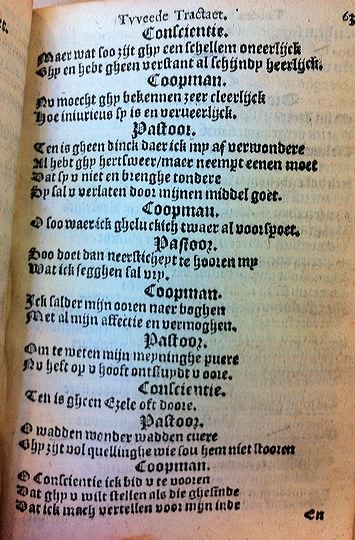 Tvveede Tractaet. 63
Conscientie.
Maer wat soo zijt ghy een schellem oneerlijck
Ghy en hebt gheen verstant al schijndy heerlijck.
Coopman.
Nv moecht ghy bekennen zeer cleerlijck
Hoe iniurieus sy is en verveerlijck.
Pastoor.
Ten is gheen dinck daer ick my af verwondere
Al hebt ghy hertsweer/maer neempt eenen moet
Dat sy v niet en brenghe tondere
Sy sal v verlaten door mijnen middel goet.
Coopman.
O soo waer ick gheluckich twaer al voorspoet.
Pastoor.
Soo doet dan neersticheyt te hooren my
Wat ick segghen sal vry.
Coopman.
Ick salder mijn ooren naer boghen
Met al mijn affectie en vermoghen.
Pastoor.
Om te weten mijn meyninghe puere
Nv heft op v hooft ontstuydt v oore.
Conscientie.
Ten is gheen Ezele oft doore.
Pastoor.
O wadden wonder wadden cuere
Ghy zijt vol quellinghe wie sou hem niet stooren
Coopman.
O Conscientie ick bid v te vooren
Dat ghy v wilt stellen als die ghesinde
Dat ick mach vertellen voor mijn inde
En